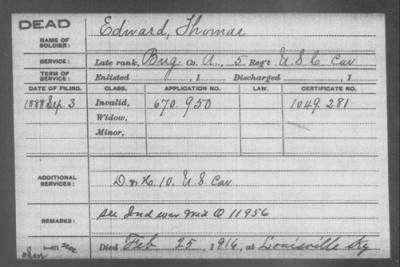 DEAD
NAME OF SOLDIER: Edward, Thomas
SERVICE: Late rank, Bug Co. A, 5 Reg't U.S.C. Cav
TERM OF SERVICE: Enlisted , 1 Discharged , 1
DATE OF FILING. CLASS. APPLICATION NO. LAW. CERTIFICATE NO.
1888 Sep. 3 Invalid, 670.950 1049.281
Widow,
Minor,
ADDITIONAL SERVICES: D & K. 10. U.S. Cav
REMARKS: See Ind war O 11956
Died Feb 25, 1916, at Louisville Ky